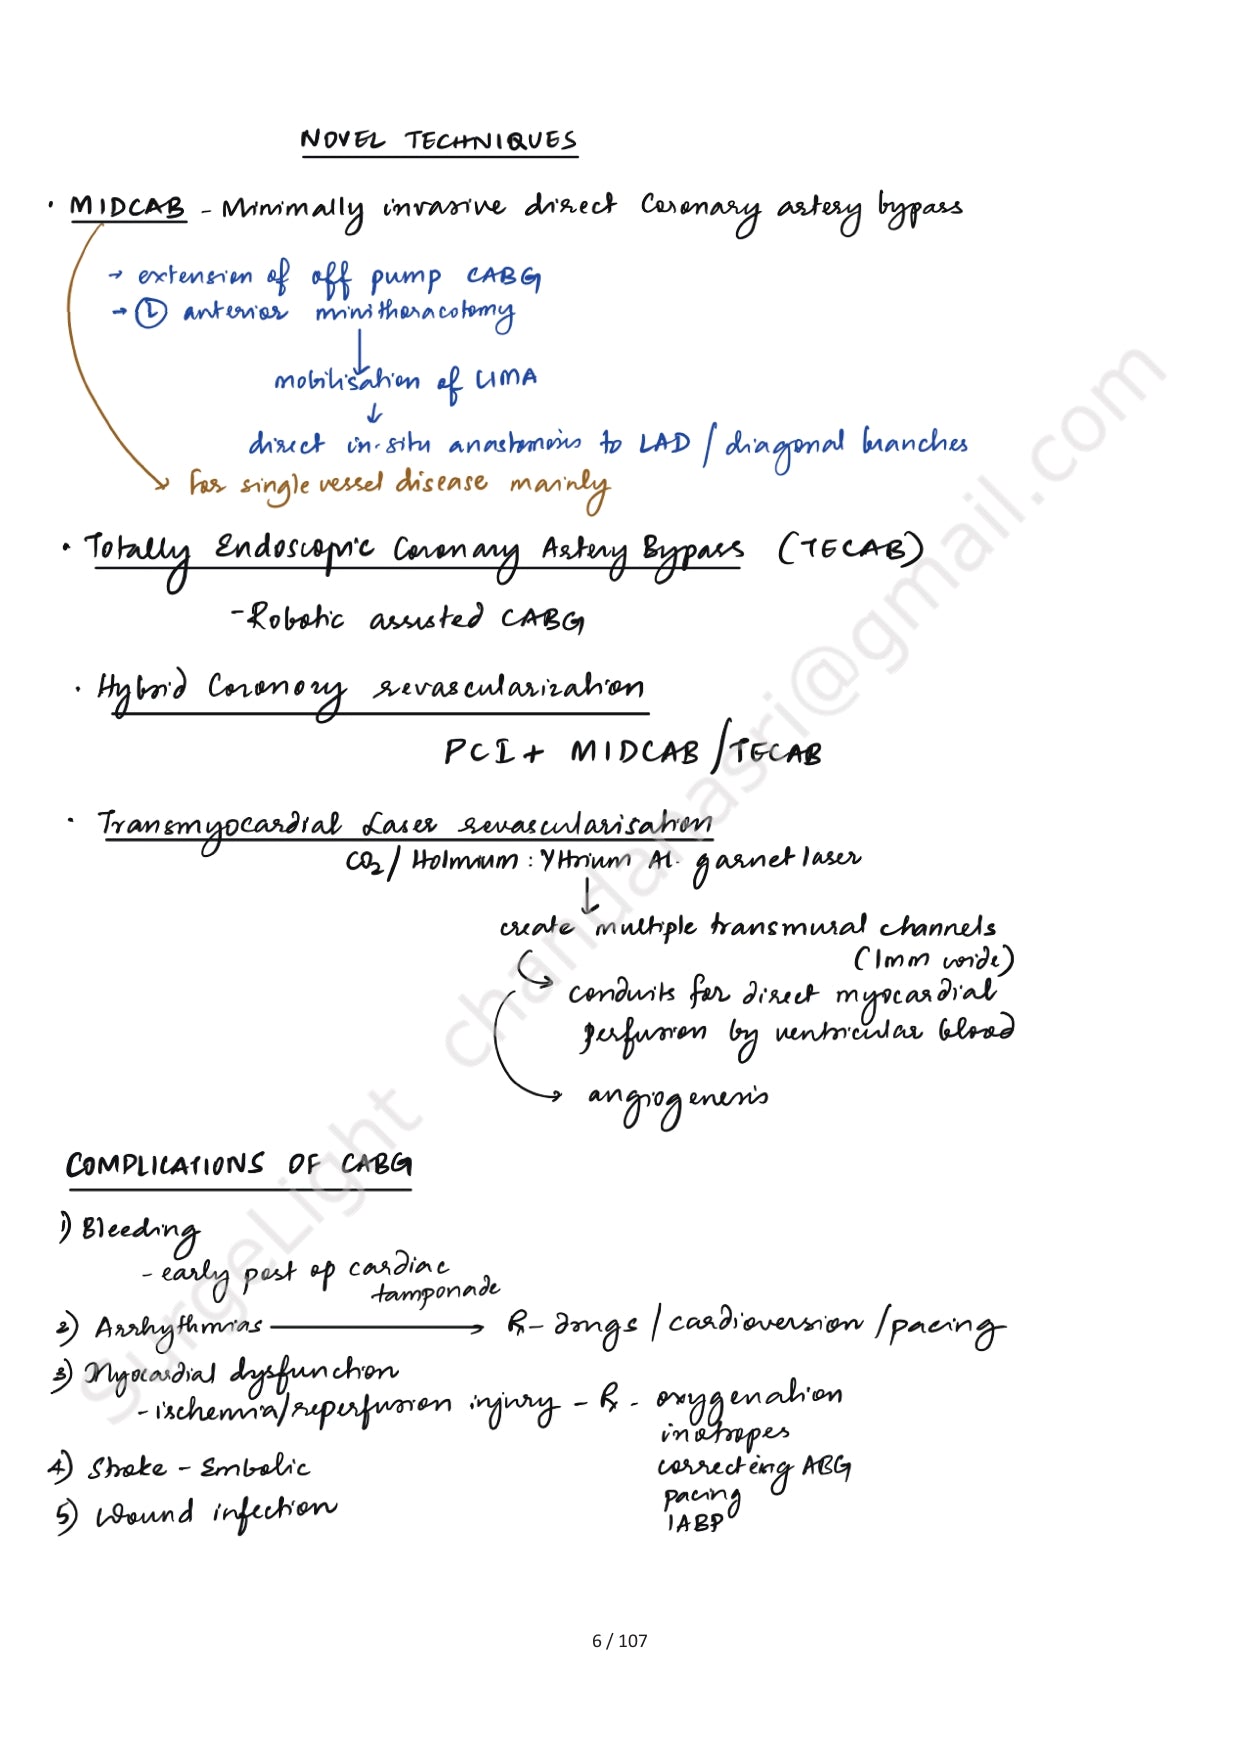 NOVEL TECHNIQUES
· MIDCAB - Minimally invasive direct Coronary artery bypass
→ extension of off pump CABG
→ Ⓛ anterior minithoracotomy
↓
mobilisation of LIMA
↓
direct in-situ anastomosis to LAD / diagonal branches
→ for single vessel disease mainly
· Totally Endoscopic Coronary Artery Bypass (TECAB)
- Robotic assisted CABG
· Hybrid Coronory revascularization
PCI + MIDCAB / TECAB
· Transmyocardial Laser revascularisation
CO2 / Holmium : Yttrium Al. garnet laser
↓
create multiple transmural channels
(1mm wide)
→ conduits for direct myocardial
perfusion by ventricular blood
→ angiogenesis
COMPLICATIONS OF CABG
1) Bleeding
- early post op cardiac
tamponade
2) Arrhythmias → Rx - drugs / cardioversion / pacing
3) Myocardial dysfunction
- ischemia/reperfusion injury - Rx - oxygenation
inotropes
4) Stroke - Embolic correcting ABG
pacing
5) Wound infection IABP
SurgeLight chandanasri@gmail.com
6 / 107